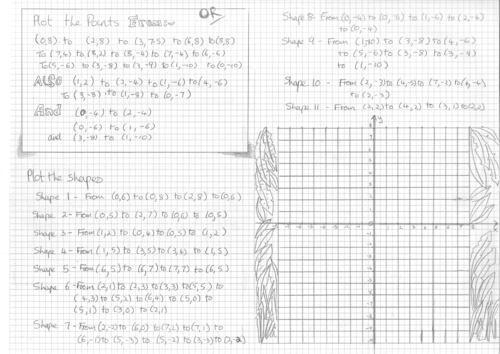 Plot the Points From:- OR
(0,8) to (2,8) to (3,7.5) to (6,8) to (8,8)
to (7,6) to (8,2) to (8,-4) to (7,-4) to (6,-6)
to (5,-6) to (3,-8) to (3,-9) to (1,-10) to (0,-10)
ALSO (1,2) to (2,-4) to (1,-6) to (4,-6)
to (3,-8) to (1,-8) to (0,-7)
And (0,-4) to (2,-4)
(0,-6) to (1,-6)
and (3,-8) to (1,-10)
Plot the shapes
Shape 1 - From (0,6) to (0,8) to (2,8) to (0,6)
Shape 2 - From (0,5) to (2,7) to (0,6) to (0,5)
Shape 3 - From (1,2) to (0,4) to (0,5) to (1,2)
Shape 4 - From (1,5) to (3,5) to (3,6) to (1,5)
Shape 5 - From (6,5) to (6,7) to (7,7) to (6,5)
Shape 6 - From (2,1) to (2,3) to (3,3) to (4,5) to
(4,3) to (5,2) to (6,4) to (5,0) to
(5,1) to (3,0) to (2,1)
Shape 7 - From (2,-2) to (6,0) to (7,2) to (7,1) to
(6,-1) to (5,-3) to (5,-2) to (3,-3) to (2,-2)
Shape 8 - From (0,-4) to (0,-6) to (1,-6) to (2,-4)
to (0,-4)
Shape 9 - From (1,-10) to (3,-8) to (4,-6)
to (5,-6) to (3,-8) to (3,-9)
to (1,-10)
Shape 10 - From (2,-3) to (4,-5) to (7,-2) to (4,-4)
to (2,-3)
Shape 11 - From (2,2) to (4,2) to (3,1) to (2,2)
y